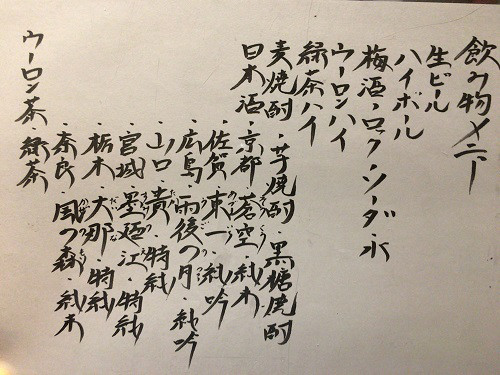 飲み物メニュー
生ビール
ハイボール
梅酒・ロック・ソーダ・水
ウーロンハイ
緑茶ハイ
麦焼酎・芋焼酎・黒糖焼酎
日本酒・京都・蒼空・純米
・佐賀・東一・純吟
・広島・雨後の月・純吟
・山口・貴・特純
・宮城・墨廼江・特純
・栃木・大那・特純
・奈良・風の森・純米
ウーロン茶・緑茶